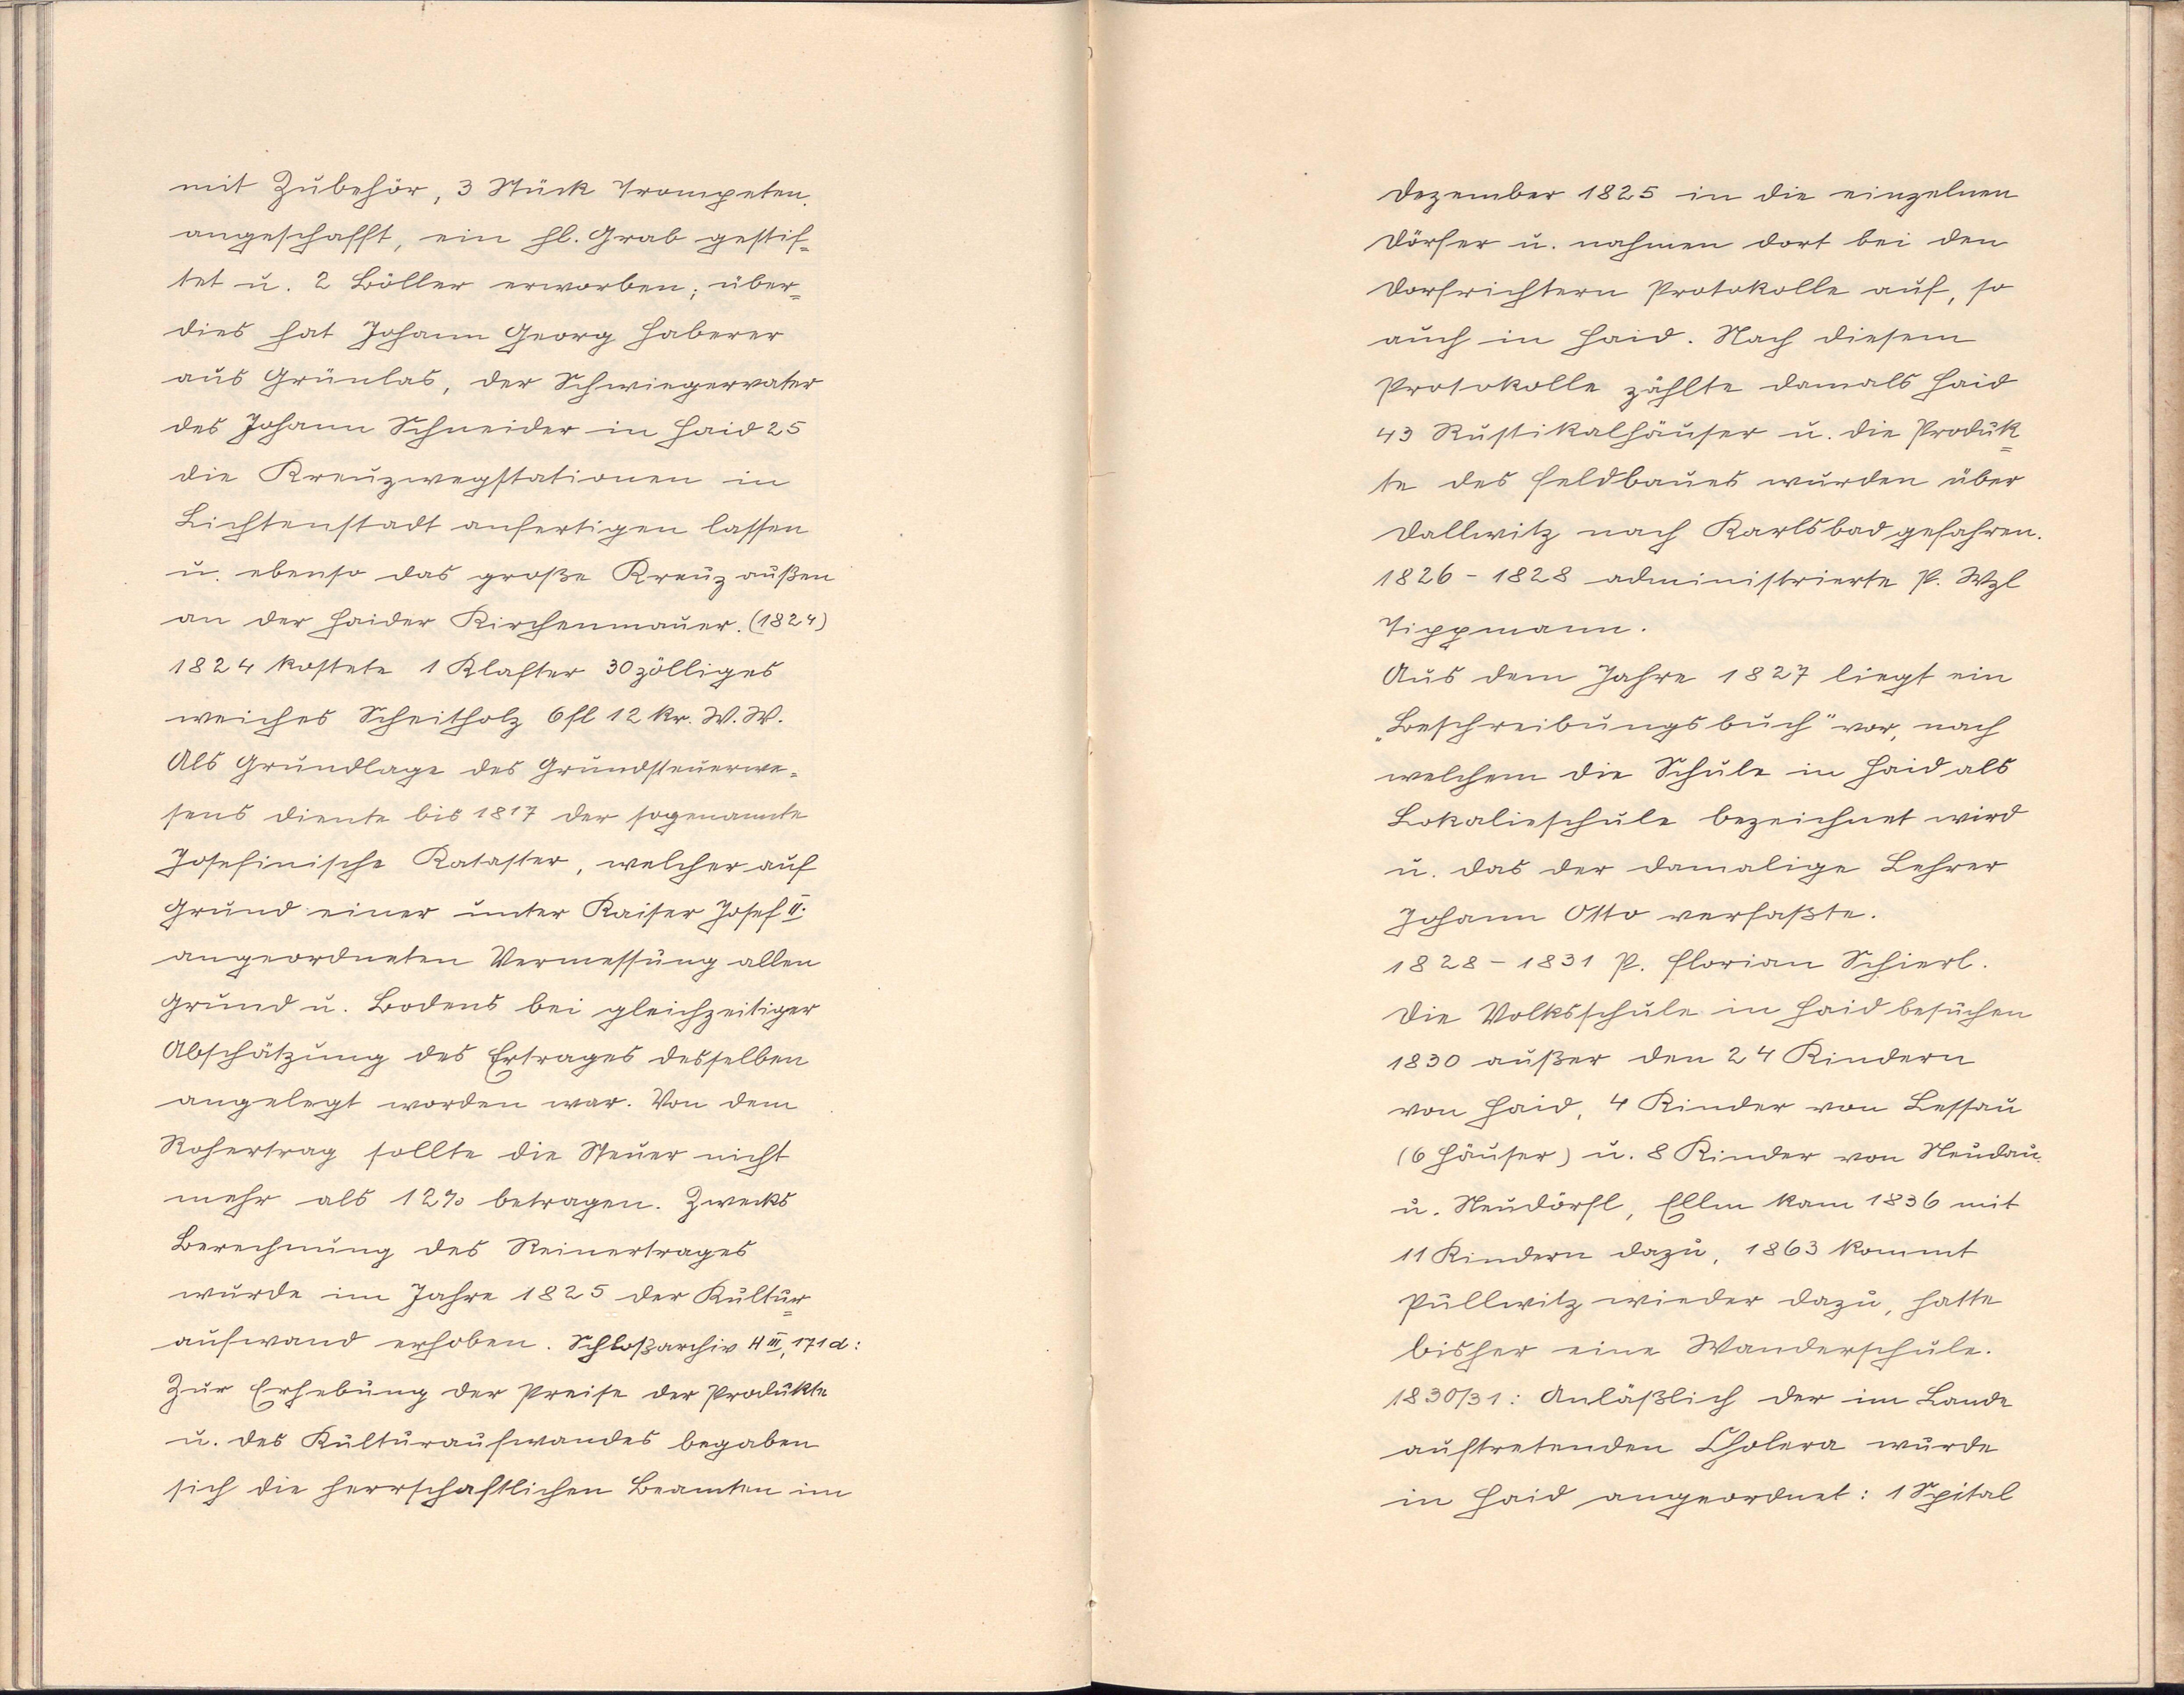 mit Zubehör, 3 Stück Trompeten
angeschafft, ein hl. Grab gestif=
tet u. 2 Böller erworben; über=
dies hat Johann Georg Haberer
aus Grünlas, der Schwiegervater
des Johann Schneider in Haid 25
die Kreuzwegstationen in
Lichtenstadt anfertigen lassen
u. ebenso das große Kreuz außen
an der Haider Kirchenmauer. (1824)
1824 kostete 1 Klafter 30zölliges
weiches Scheitholz 6fl 12 kr. W. W.
Als Grundlage des Grundsteuerwe=
sens diente bis 1817 der sogenannte
Josefinische Kataster, welcher auf
Grund einer unter Kaiser Josef II.
angeordneten Vermessung allen
Grund u. Bodens bei gleichzeitiger
Abschätzung des Ertrages desselben
angelegt worden war. Von dem
Rohertrag sollte die Steuer nicht
mehr als 12% betragen. Zwecks
Berechnung des Reinertrages
wurde im Jahre 1825 der Kultur=
aufwand erhoben. Schloßarchiv H III, 171d:
Zur Erhebung der Preise der Produkte
u. des Kulturaufwandes begaben
sich die herrschaftlichen Beamten im
Dezember 1825 in die einzelnen
Dörfer u. nahmen dort bei den
Dorfrichtern Protokolle auf, so
auch in Haid. Nach diesem
Protokolle zählte damals Haid
43 Rustikalhäuser u. die Produk=
te des Feldbaues wurden über
Dallwitz nach Karlsbad gefahren.
1826 - 1828 administrierte P. Wzl
Tippmann.
Aus dem Jahre 1827 liegt ein
„Beschreibungsbuch" vor, nach
welchem die Schule in Haid als
Lokalieschule bezeichnet wird
u. das der damalige Lehrer
Johann Otto verfaßte.
1828 - 1831 P. Florian Schierl.
Die Volksschule in Haid besuchen
1830 außer den 24 Kindern
von Haid, 4 Kinder von Lessau
(6 Häuser) u. 8 Kinder von Neudau
u. Neudörfl, Ellm kam 1836 mit
11 Kindern dazu, 1863 kommt
Püllwitz wieder dazu, hatte
bisher eine Wanderschule.
1830/31: Anläßlich der im Lande
auftretenden Cholera wurde
in Haid angeordnet: 1 Spital